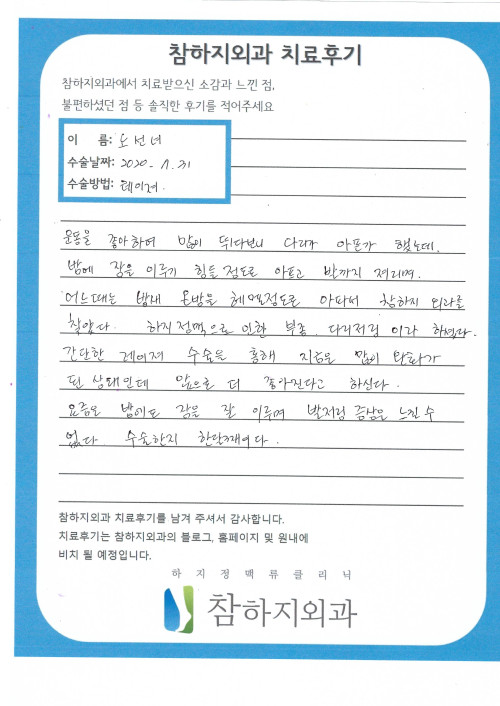 참하지외과 치료후기
참하지외과에서 치료받으신 소감과 느낀 점,
불편하셨던 점 등 솔직한 후기를 적어주세요
이 름: 노선녀
수술날짜: 2020. 1. 31
수술방법: 레이져.
운동을 좋아하여 많이 뛰다보니 다리가 아프가 했는데.
밤에 잠을 이루기 힘들 정도로 아프고 발까지 저리며.
어느때는 밤새 온방을 헤멜정도로 아파서 참하지 외과를
찾았다. 하지정맥으로 인한 부종. 다리저림 이라 하셨다.
간단한 레이져 수술을 통해 지금은 많이 완화가
된 상태인데 앞으로 더 좋아진다고 하신다.
요즘은 밤에도 잠을 잘 이루며 발저림 증상을 느낄 수
없다 수술한지 한달째이다.
참하지외과 치료후기를 남겨 주셔서 감사합니다.
치료후기는 참하지외과의 블로그, 홈페이지 및 원내에
비치 될 예정입니다.
하지정맥류클리닉
참하지외과